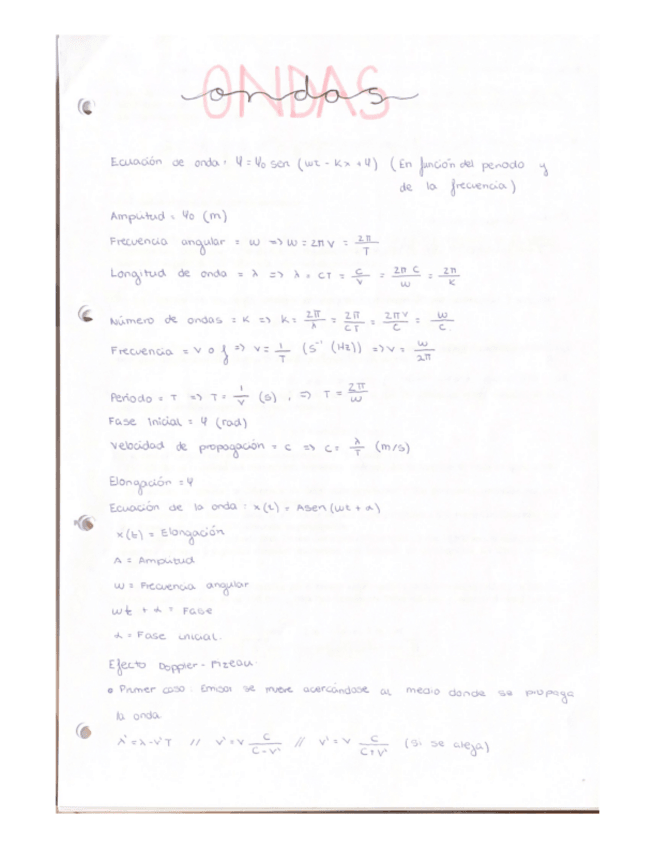 ONDAS
ondas
Ecuación de onda: Ψ = Ψ₀ sen (ωt - Kx + φ) (En función del periodo y
de la frecuencia)
Amplitud = Ψ₀ (m)
Frecuencia angular = ω => ω = 2πν = 2π/T
Longitud de onda = λ => λ = CT = C/ν = 2πC/ω = 2π/K
Número de ondas = K => K = 2π/λ = 2π/CT = 2πν/C = ω/C.
Frecuencia = ν o f => ν = 1/T (S⁻¹ (Hz)) => ν = ω/2π
Periodo = T => T = 1/ν (s), => T = 2π/ω
Fase Inicial = φ (rad)
Velocidad de propagación = C => C = λ/T (m/s)
Elongación = Ψ
Ecuación de la onda: x(t) = Asen(ωt + α)
x(t) = Elongación
A = Amplitud
ω = Frecuencia angular
ωt + α = Fase
α = Fase inicial.
Efecto Doppler - Fizeau.
• Primer caso: Emisor se mueve acercándose al medio donde se propaga
la onda
λ' = λ - V'T // ν' = ν C/C-V' // ν' = ν C/C+V' (si se aleja)